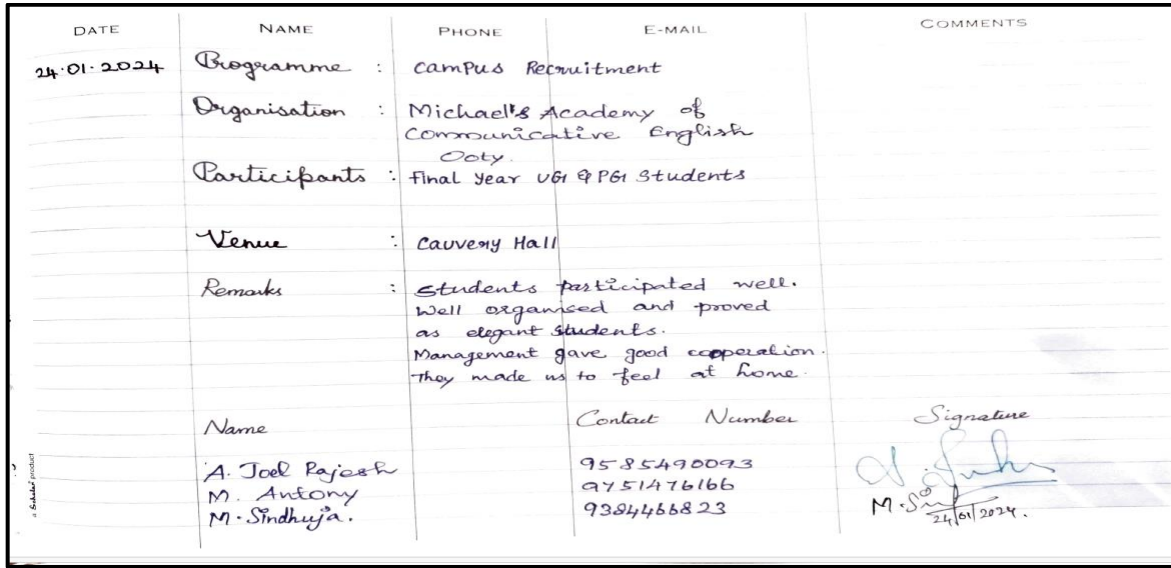 DATE NAME PHONE E-MAIL COMMENTS
24.01.2024 Programme : Campus Recruitment
Organisation : Michael's Academy of
Communicative English
Ooty.
Participants : Final Year UG & PG Students
Venue : Cauvery Hall
Remarks : Students participated well.
Well organised and proved
as elegant students.
Management gave good cooperation.
They made us to feel at home.
Name Contact Number Signature
A. Joel Rajesh 9585490093
M. Antony 9751476166
M. Sindhuja. 9384466823 M.
24/01/2024.
a Scholar product